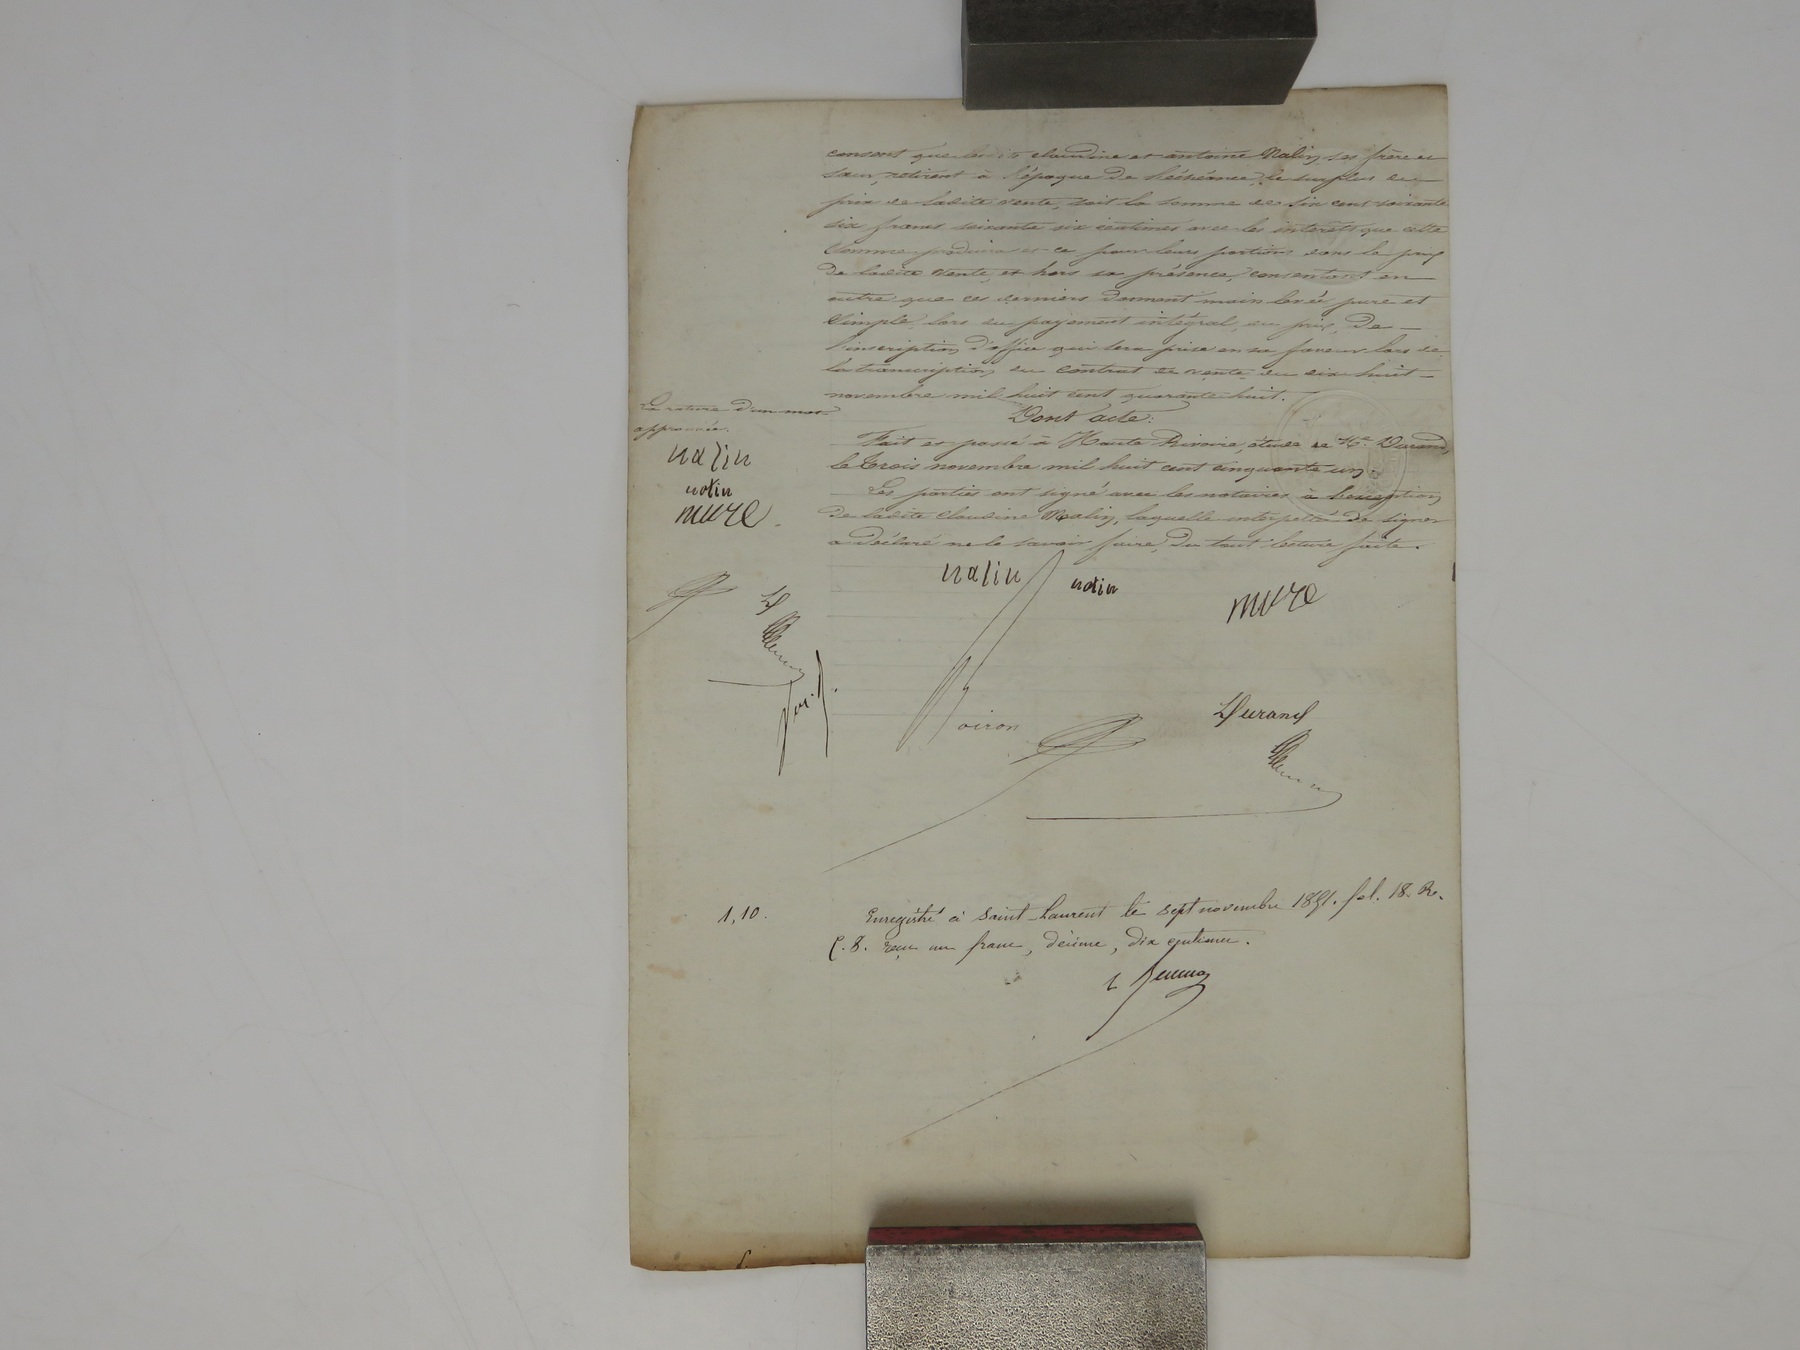 consent que les dits claudine et antoine Nalin, ses frère et
sœur, retirent à l'époque de l'échéance, le surplus du
prix de ladite vente, soit la somme de six cent soixante
six francs soixante six centimes avec les intérêts que cette
somme produira et ce pour leurs portions dans le prix
de ladite vente, et hors sa présence, consentant en
outre que ces derniers donnent main levée pure et
simple, lors du payement intégral du prix, de
l'inscription d'office qui sera prise en sa faveur lors de
la transcription du contrat de vente du dix huit
novembre mil huit cent quarante huit.
Dont acte:
Fait et passé à Haute Rivoire, étude de Me. Durand,
le trois novembre mil huit cent cinquante un.
Les parties ont signé avec les notaires à l'exception
de ladite Claudine Nalin, laquelle interpellée de signer
a déclaré ne le savoir faire, du tout lecture faite.
La rature d'un mot
approuvée.
nalin
nolin
mure
nalin nolin
mure
Voiron
Durand
1,10.
Enregistré à Saint Laurent le sept novembre 1851. fol. 18. Ro.
C. 8. reçu un franc, décime, dix centimes.